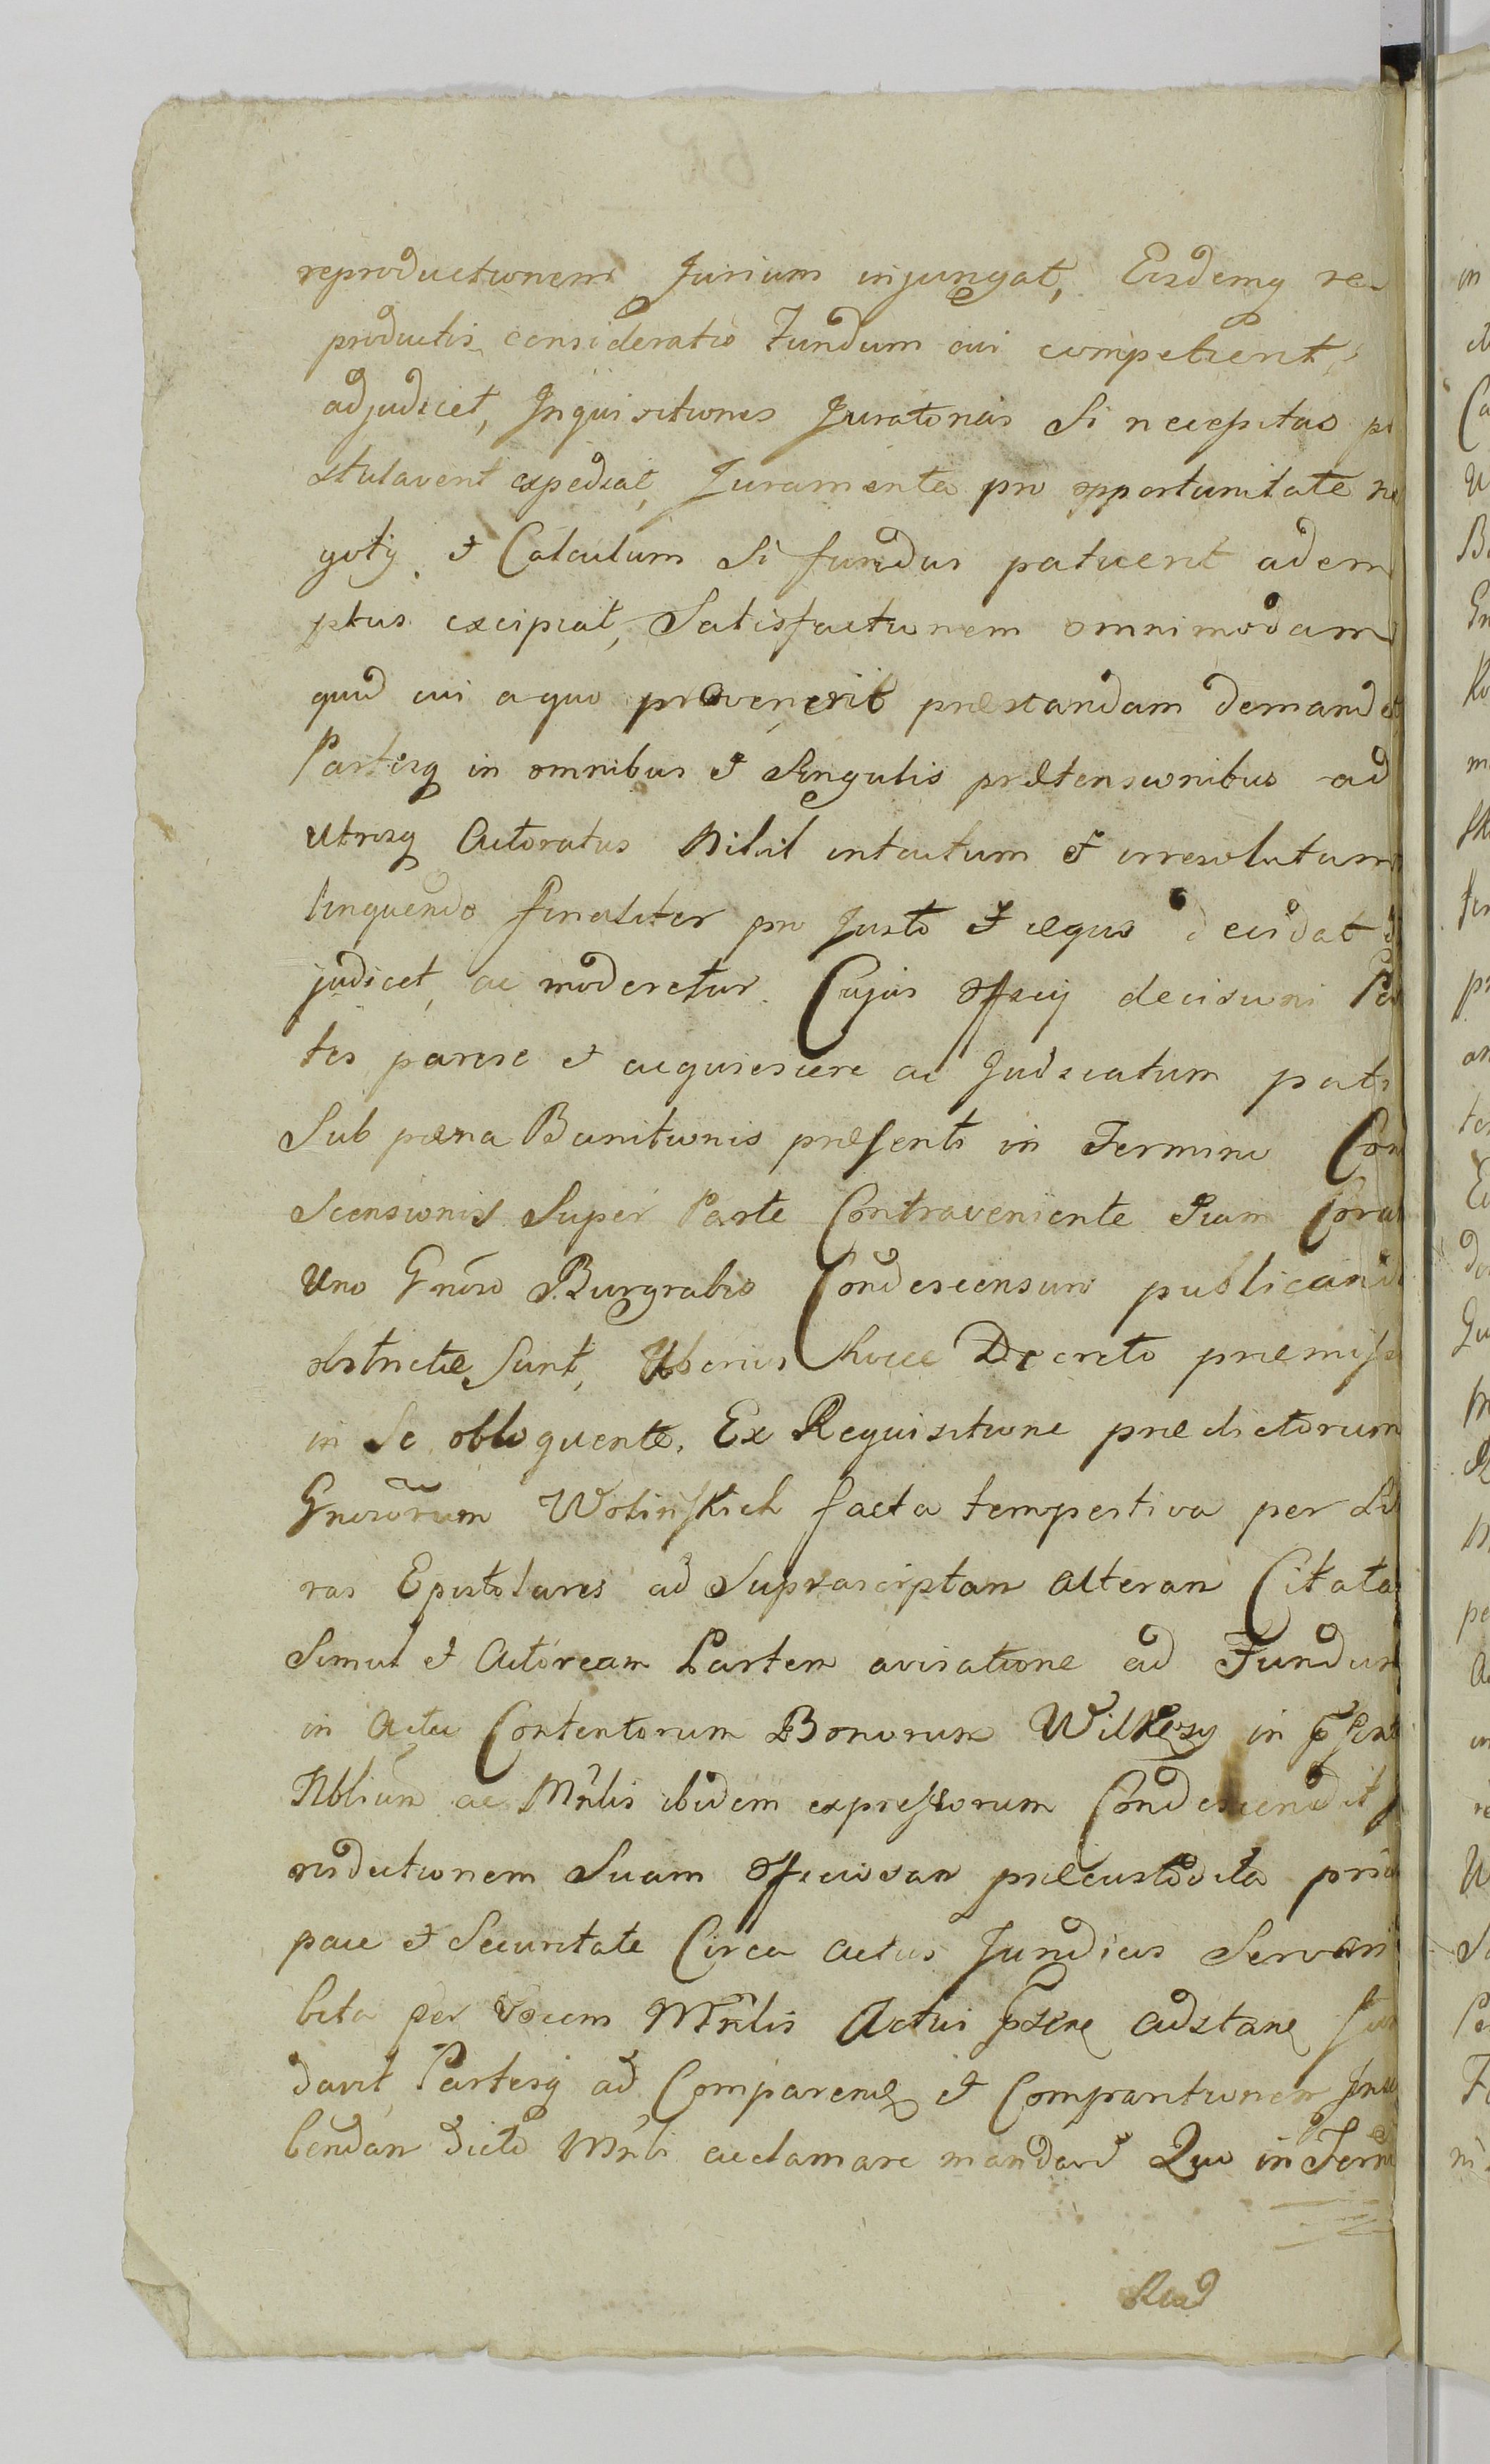 reproductionem Jurium injungat, Eisdemq re-
productis considerato Fundum cui competient,
adjudicet, Inquisitiones Juratorias Si necessitas po
stulaverit expediat, Juramenta pro opportunitate ne
gotij et Calculum Si fundus patuerit adem
ptus excipiat, Satisfactionem omnimodam
quid cui a quo provenerit præstandam demandet
Partesq in omnibus et Singulis prætensionibus ad
utrosq Actoratus Nihil intactum et irresolutum
linquendo finaliter pro Justo et æquo decidat
judicet, ac moderetur. Cujus Officij decisioni Par
tes parere et acquiescere ac Judicatum pati
Sub pæna Banitionis præsenti in Termino Con
Scensionis Super Parte Contraveniente Etiam Coram
Uno Gnoso Burgrabio Condescensuro publicand
obstrictæ Sunt, Uberius hocce Decreto præmissa
in Se obloquente. Ex Requisitione prædictorum
Gnosorum Wolinskich facta tempestiva per Lit
ras Epistolares ad Suprascriptan alteran Citata
Simul et Actoream Partem avisatione ad Fundum
in Actu Contentorum Bonorum Wilkesy in
Nblium ac Mrlis ibidem expressorum Condescendit
risdictionem Suam Officiosan præcustodita
pace et Securitate Circa actus Juridicos Servari
beta per Vocem Mrlis Actui adstane fun
davit, Partesq ad Comparend et Comparitionen
bendan dicto Mrli acclamare mandavit Quo in Termi